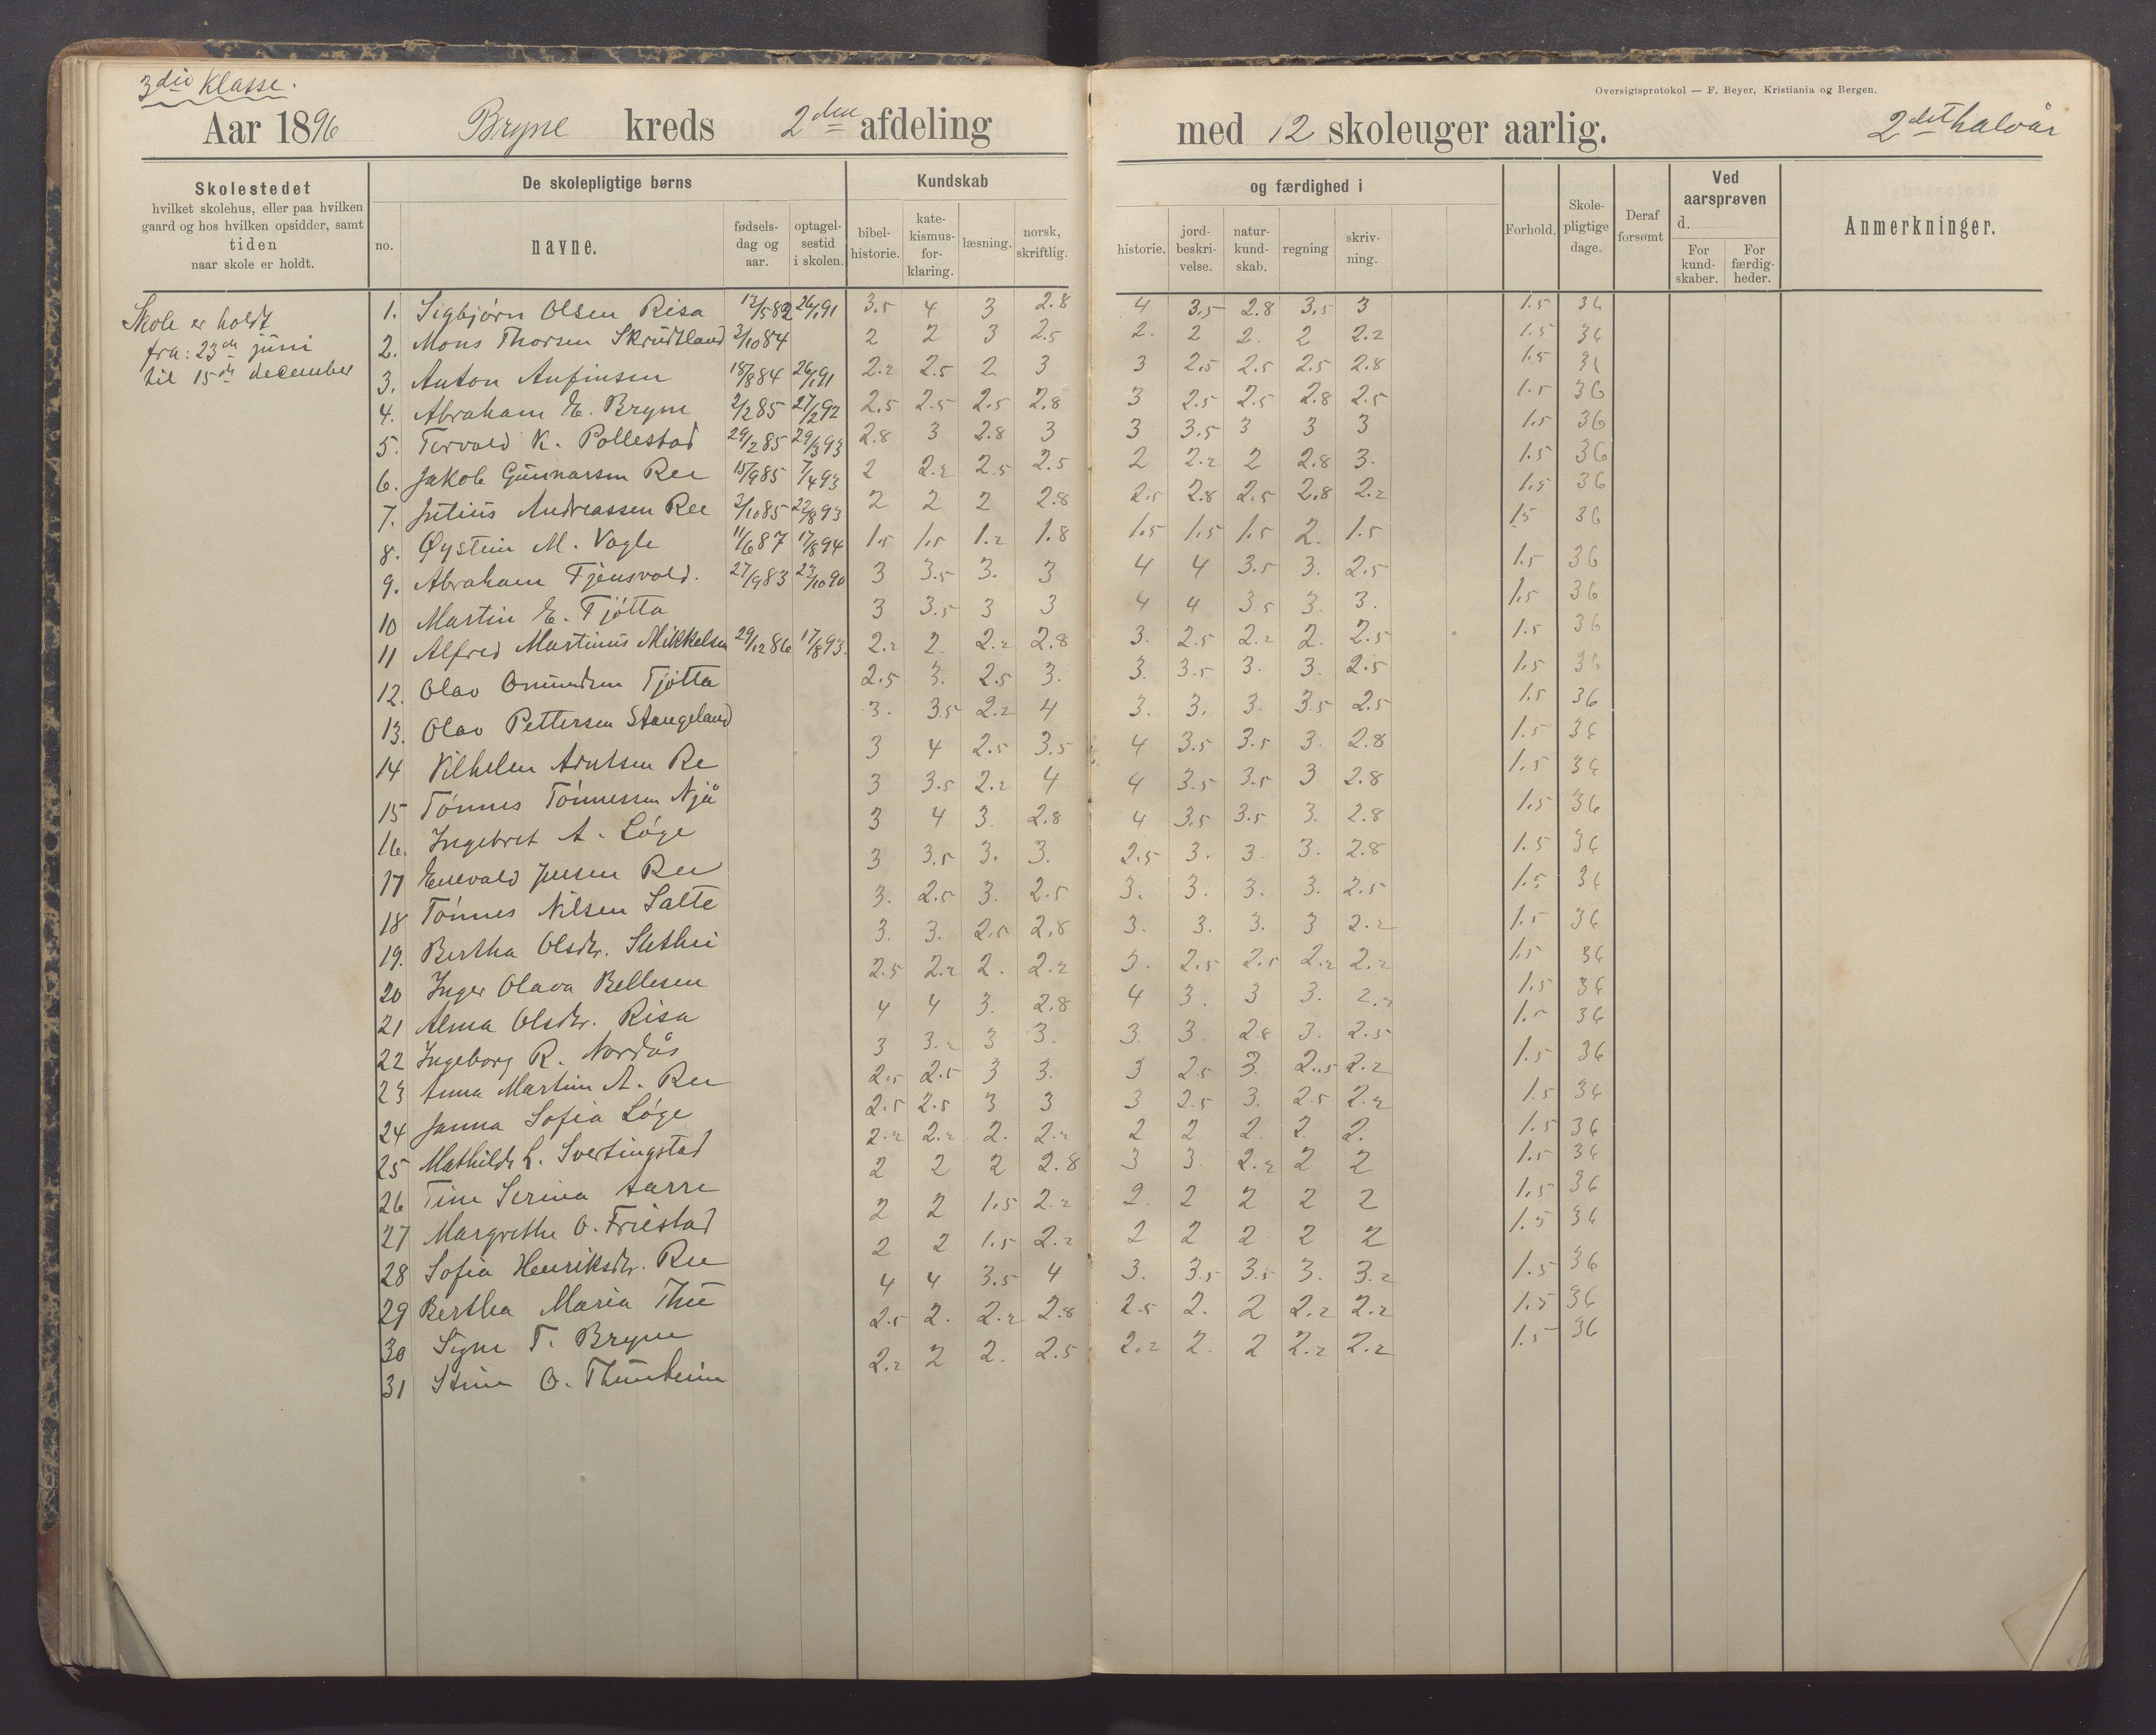 3die Klasse.
Oversigtsprotokol — F. Beyer, Kristiania og Bergen.
Aar 1896 Bryne kreds 2den afdeling med 12 skoleuger aarlig. 2det halvår
Skolestedet
hvilket skolehus, eller paa hvilken
gaard og hos hvilken opsidder, samt
tiden
naar skole er holdt.
De skolepligtige børns
no.
navne.
fødsels-
dag og
aar.
optagel-
sestid
i skolen.
Kundskab
bibel-
historie.
kate-
kismus-
for-
klaring.
læsning.
norsk,
skriftlig.
og færdighed i
historie.
jord-
beskri-
velse.
natur-
kund-
skab.
regning
skriv-
ning.
Forhold.
Skole-
pligtige
dage.
Deraf
forsømt
Ved
aarsprøven
d.
For
kund-
skaber.
For
færdig-
heder.
Anmerkninger.
Skole er holdt
fra: 23de juni
til 15de december
1. Sigbjørn Olsen Risa 12/5 82 26/1 91 3.5 4 3 2.8 4 3.5 2.8 3.5 3 1.5 36
2. Mons Thorsen Skrudtland 2/10 84 2 2 3 2.5 2. 2 2. 2 2.2 1.5 36
3. Anton Anfinsen 18/8 84 26/1 91 2.2 2.5 2 3 3 2.5 2.5 2.5 2.8 1.5 36
4. Abraham E. Bryne 2/2 85 27/2 92 2.5 2.5 2.5 2.8 3 2.5 2.5 2.8 2.5 1.5 36
5. Torvald K. Pollestad 29/2 85 29/3 93 2.8 3 2.8 3 3 3.5 3 3 3 1.5 36
6. Jakob Gunnarsen Ree 15/9 85 7/4 93 2 2.2 2.5 2.5 2 2.2 2 2.8 3. 1.5 36
7. Julius Andreassen Ree 2/10 85 22/8 93 2 2 2 2.8 2.5 2.8 2.5 2.8 2.2 1.5 36
8. Øystein M. Vagle 11/6 87 17/8 94 1.5 1.5 1.2 1.8 1.5 1.5 1.5 2. 1.5 1.5 36
9. Abraham Tjensvold. 27/9 83 23/10 90 3 3.5 3. 3 4 4 3.5 3. 2.5 1.5 36
10 Martin E. Tjøtta 3 3.5 3 3 4 4 3.5 3. 3. 1.5 36
11 Alfred Martinus Mikkelsen 29/12 86 17/8 93. 2.2 2. 2.2 2.8 3. 2.5 2.2 2. 2.5 1.5 36
12. Olav Omundsen Tjøtta 2.5 3. 2.5 3. 3. 3.5 3. 3. 2.5 1.5 36
13. Olav Pettersen Stangeland 3. 3.5 2.2 4 3. 3. 3. 3.5 2.5 1.5 36
14 Vilhelm Arntsen Re 3 4 2.5 3.5 4 3.5 3.5 3. 2.8 1.5 36
15 Tønnes Tønnessen Njå 3 3.5 2.2 4 4 3.5 3.5 3 2.8 1.5 36
16. Ingebret A. Løge 3 4 3. 2.8 4 3.5 3.5 3. 2.8 1.5 36
17 Enevald Jensen Ree 3 3.5 3. 3. 2.5 3. 3. 3. 2.8 1.5 36
18 Tønnes Nilsen Salte 3. 2.5 3. 2.5 3. 3. 3. 3. 2.5 1.5 36
19. Bertha Olsdtr. 3. 3. 2.5 2.8 3. 3. 3. 3 2.2 1.5 36
20 Inger Olava Bellesen 2.5 2.2 2. 2.2 3. 2.5 2.5 2.2 2.2 1.5 36
21 Alma Olsdtr. Risa 4 4 3. 2.8 4 3. 3 3. 2.2 1.5 36
22 Ingeborg R. Nordås 3 3.2 3 3. 3. 3. 2.8 3. 2.5 1.5 36
23 Anna Martine A. Ree 2.5 2.5 3 3. 3 2.5 3. 2.5 2.2 1.5 36
24 Janna Sofia Løge 2.5 2.5 3 3 3 2.5 3. 2.5 2.2 1.5 36
25 Mathilde L. Svertingstad 2.2 2.2 2. 2.2 2 2 2. 2. 2. 1.5 36
26 Tine Serina Aarre 2 2 2 2.8 3 3. 2.2 2 2 1.5 36
27 Margrethe O. Friestad 2 2 1.5 2.2 2. 2 2 2 2 1.5 36
28 Sofia Henriksdtr. Ree 2 2 1.5 2.2 2 2 2 2 2 1.5 36
29 Bertha Maria Thu 4 4 3.5 4 3. 3.5 3.5 3. 3.2 1.5 36
30 Signe T. Bryne 2.5 2. 2.2 2.8 2.5 2. 2 2.2 2.2 1.5 36
31 Stine O. Thunheim 2.2 2 2. 2.5 2.2 2. 2 2.2 2.2 1.5 36